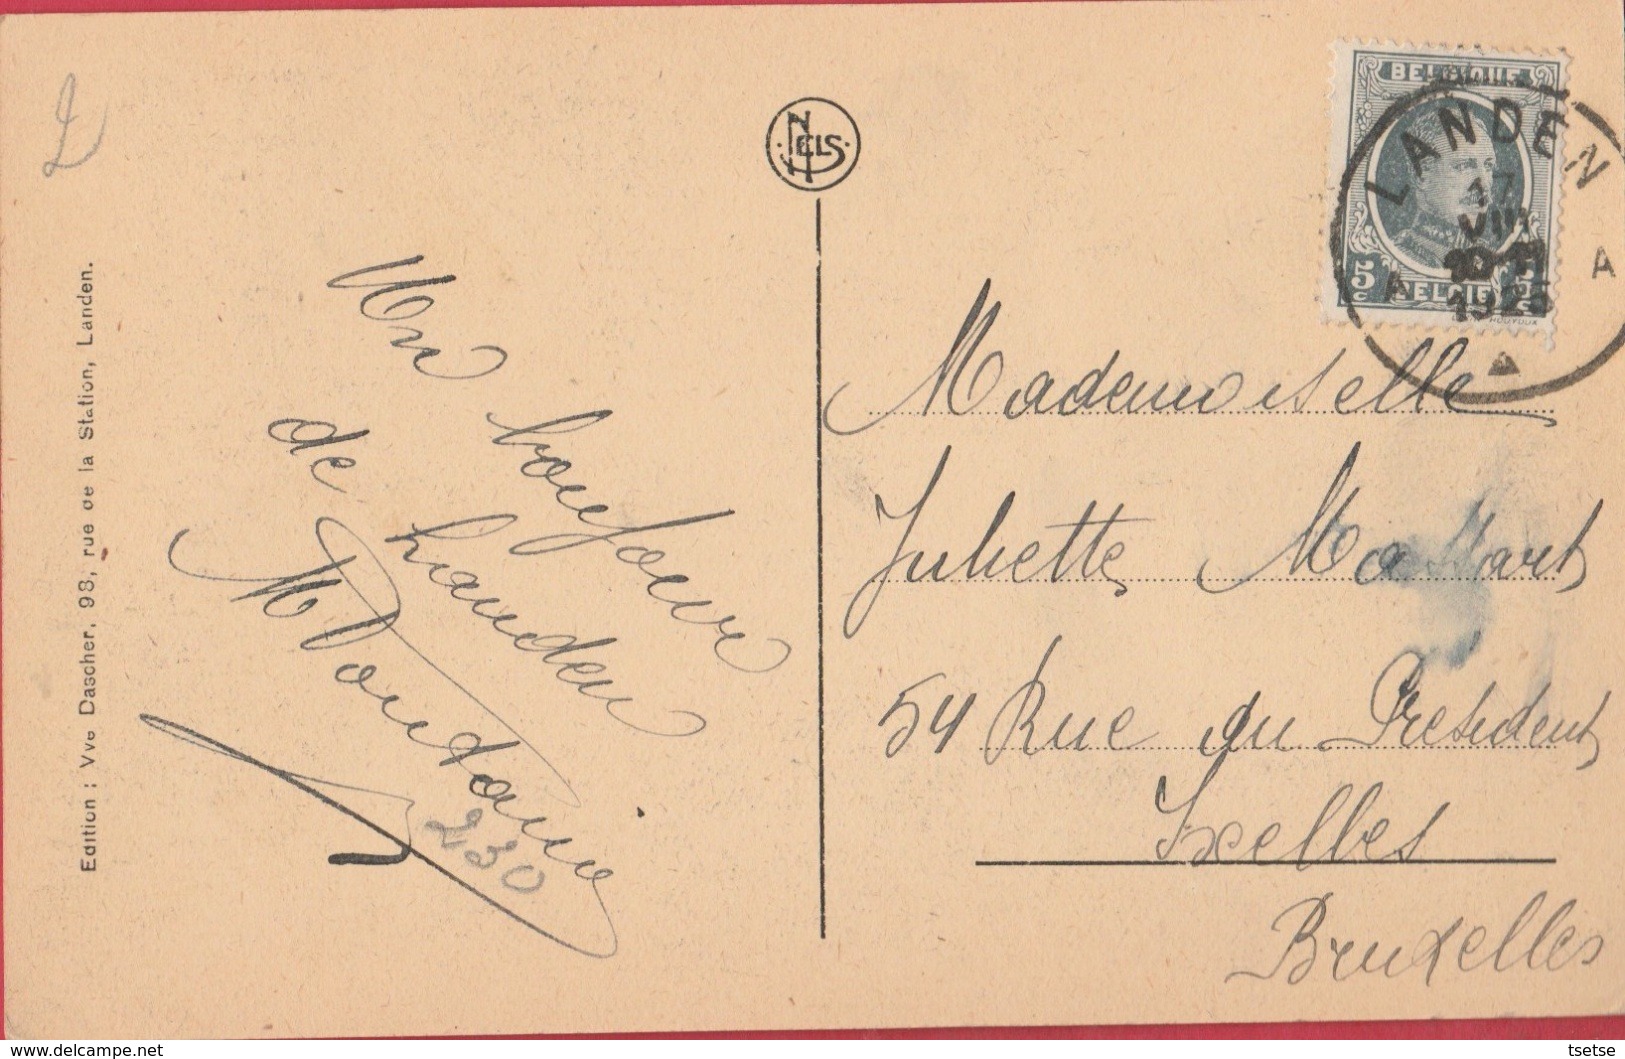 Edition : Vve Dascher, 93, rue de la Station, Landen.
NELS
BELGIQUE
LANDEN
17
VIII
10-11
1925
A A
5 c
BELGIE
HOUYOUX
Un bonjour
de Landen
M Fontaine
230
Mademoiselle
Juliette Massart
54 Rue du President
Ixelles
Bruxelles
delcampe.net
tsetse